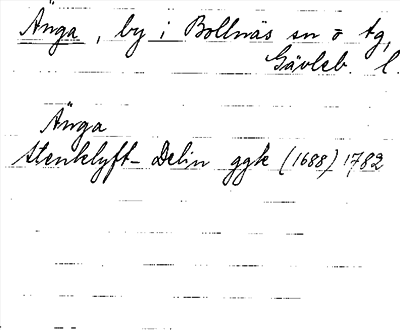 Änga, by i Bollnäs sn o tg,
Gävleb. l.
Änga
Stenklyft - Delin ggk (1688) 1782